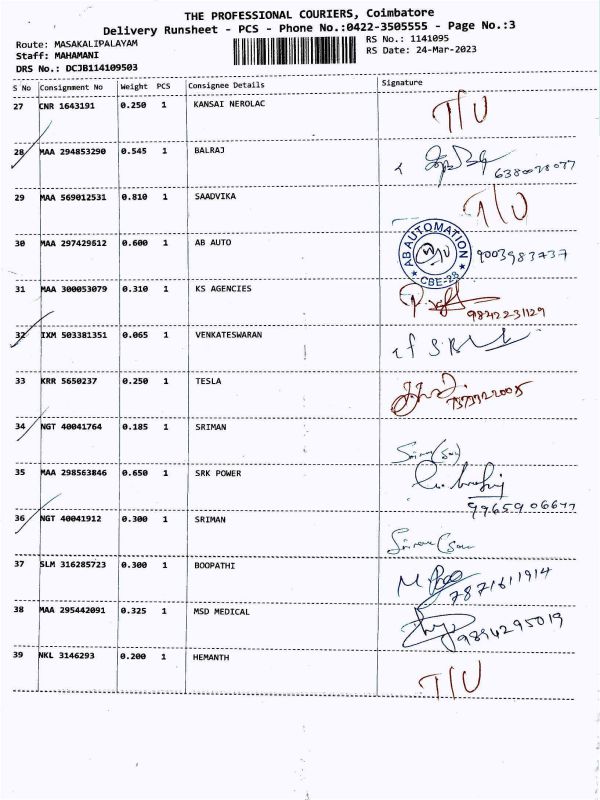 THE PROFESSIONAL COURIERS, Coimbatore
Delivery Runsheet - PCS - Phone No.:0422-3505555 - Page No.:3
Route: MASAKALIPALAYAM RS No.: 1141095
Staff: MAHAMANI RS Date: 24-Mar-2023
DRS No.: DCJB114109503
S No Consignment No Weight PCS Consignee Details Signature
27 CNR 1643191 0.250 1 KANSAI NEROLAC T/U
28 MAA 294853290 0.545 1 BALRAJ
29 MAA 569012531 0.810 1 SAADVIKA T/U
30 MAA 297429612 0.600 1 AB AUTO AB AUTOMATION CBE-28 9003983737
31 MAA 300053079 0.310 1 KS AGENCIES 9842231129
32 IXM 503381351 0.065 1 VENKATESWARAN
33 KRR 5650237 0.250 1 TESLA
34 NGT 40041764 0.185 1 SRIMAN
35 MAA 298563846 0.650 1 SRK POWER 9965906677
36 NGT 40041912 0.300 1 SRIMAN
37 SLM 316285723 0.300 1 BOOPATHI 7871611914
38 MAA 295442091 0.325 1 MSD MEDICAL 9894295019
39 NKL 3146293 0.200 1 HEMANTH T/U